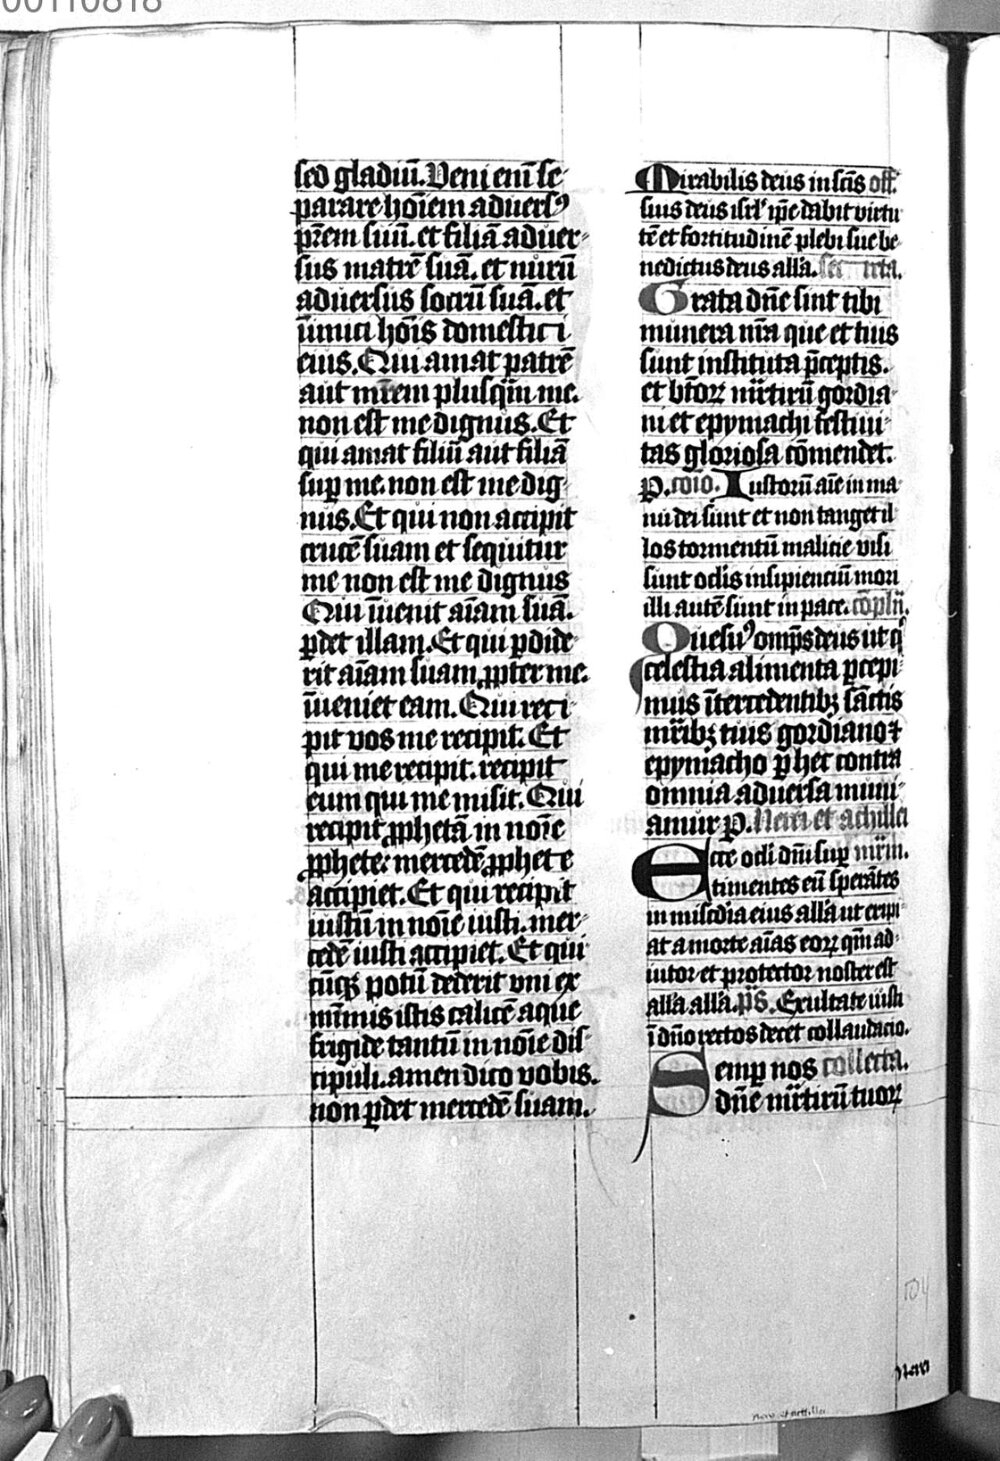 00110818
sed gladiū. Veni enī se
parare hoīem aduersꝰ
pr̄em suū. et filiā aduer-
sus matrē suā. et nurū
aduersus socrū suā. et
īimici hoīs domestici
eius. Qui amat patrē
aut mr̄em plusq̄m me.
non est me dignus. Et
qui amat filiū aut filiā
suꝑ me. non est me dig-
nus. Et qui non accipit
crucē suam et sequitur
me non est me dignus
Qui īuenit aīam suā.
ꝑdet illam. Et qui ꝑdide-
rit aīam suam ꝓpter me.
īueniet eam. Qui reci-
pit vos me recipit. Et
qui me recipit. recipit
eum qui me misit. Qui
recipit ꝓphetā in noīe
ꝓphete: mercedē ꝓphete
accipiet. Et qui recipit
iustū in noīe iusti. mer-
cedē iusti accipiet. Et qui
cūqꝫ potū dederit vni ex
mīmis istis calicē aque
frigide tantū in noīe dis-
cipuli. amen dico vobis.
non ꝑdet mercedē suam.
Mirabilis deus in scīs off.
suis deus isrl' ip̄e dabit virtu
tē et fortitudinē plebi sue be-
nedictus deus all'a.
Grata dn̄e sint tibi
munera nr̄a que et tuis
sunt instituta p̄ceptis.
et bt̄oꝝ mr̄tirū gordia-
ni et epymachi festiui-
tas gloriosa cōmendet.
P. cōīo. Iustorū aīe in ma
nu dei sunt et non tanget il
los tormentū malicie visi
sunt oclīs insipienciū mori
illi autē sunt in pace. cōplīī.
Quesūꝰ omp̄s deus ut q'
celestia alimenta ꝑcepi-
mus ītercedentibꝫ sāctis
mr̄ibꝫ tuis gordiano ⁊
epymacho ꝑ hec contra
omnia aduersa muni-
amur P. Nerei et achillei
Ecce oclī dn̄i suꝑ mr̄m.
timentes eū sperātes
in miscdīa eius all'a ut eripi
at a morte aīas eoꝝ qm̄ ad-
iutor et protector noster est
all'a all'a. ps̄. Exultate iusti
ī dn̄o rectos decet collaudacio.
Semꝑ nos collecta.
dn̄e mr̄tirū tuoꝝ
104
Nerei